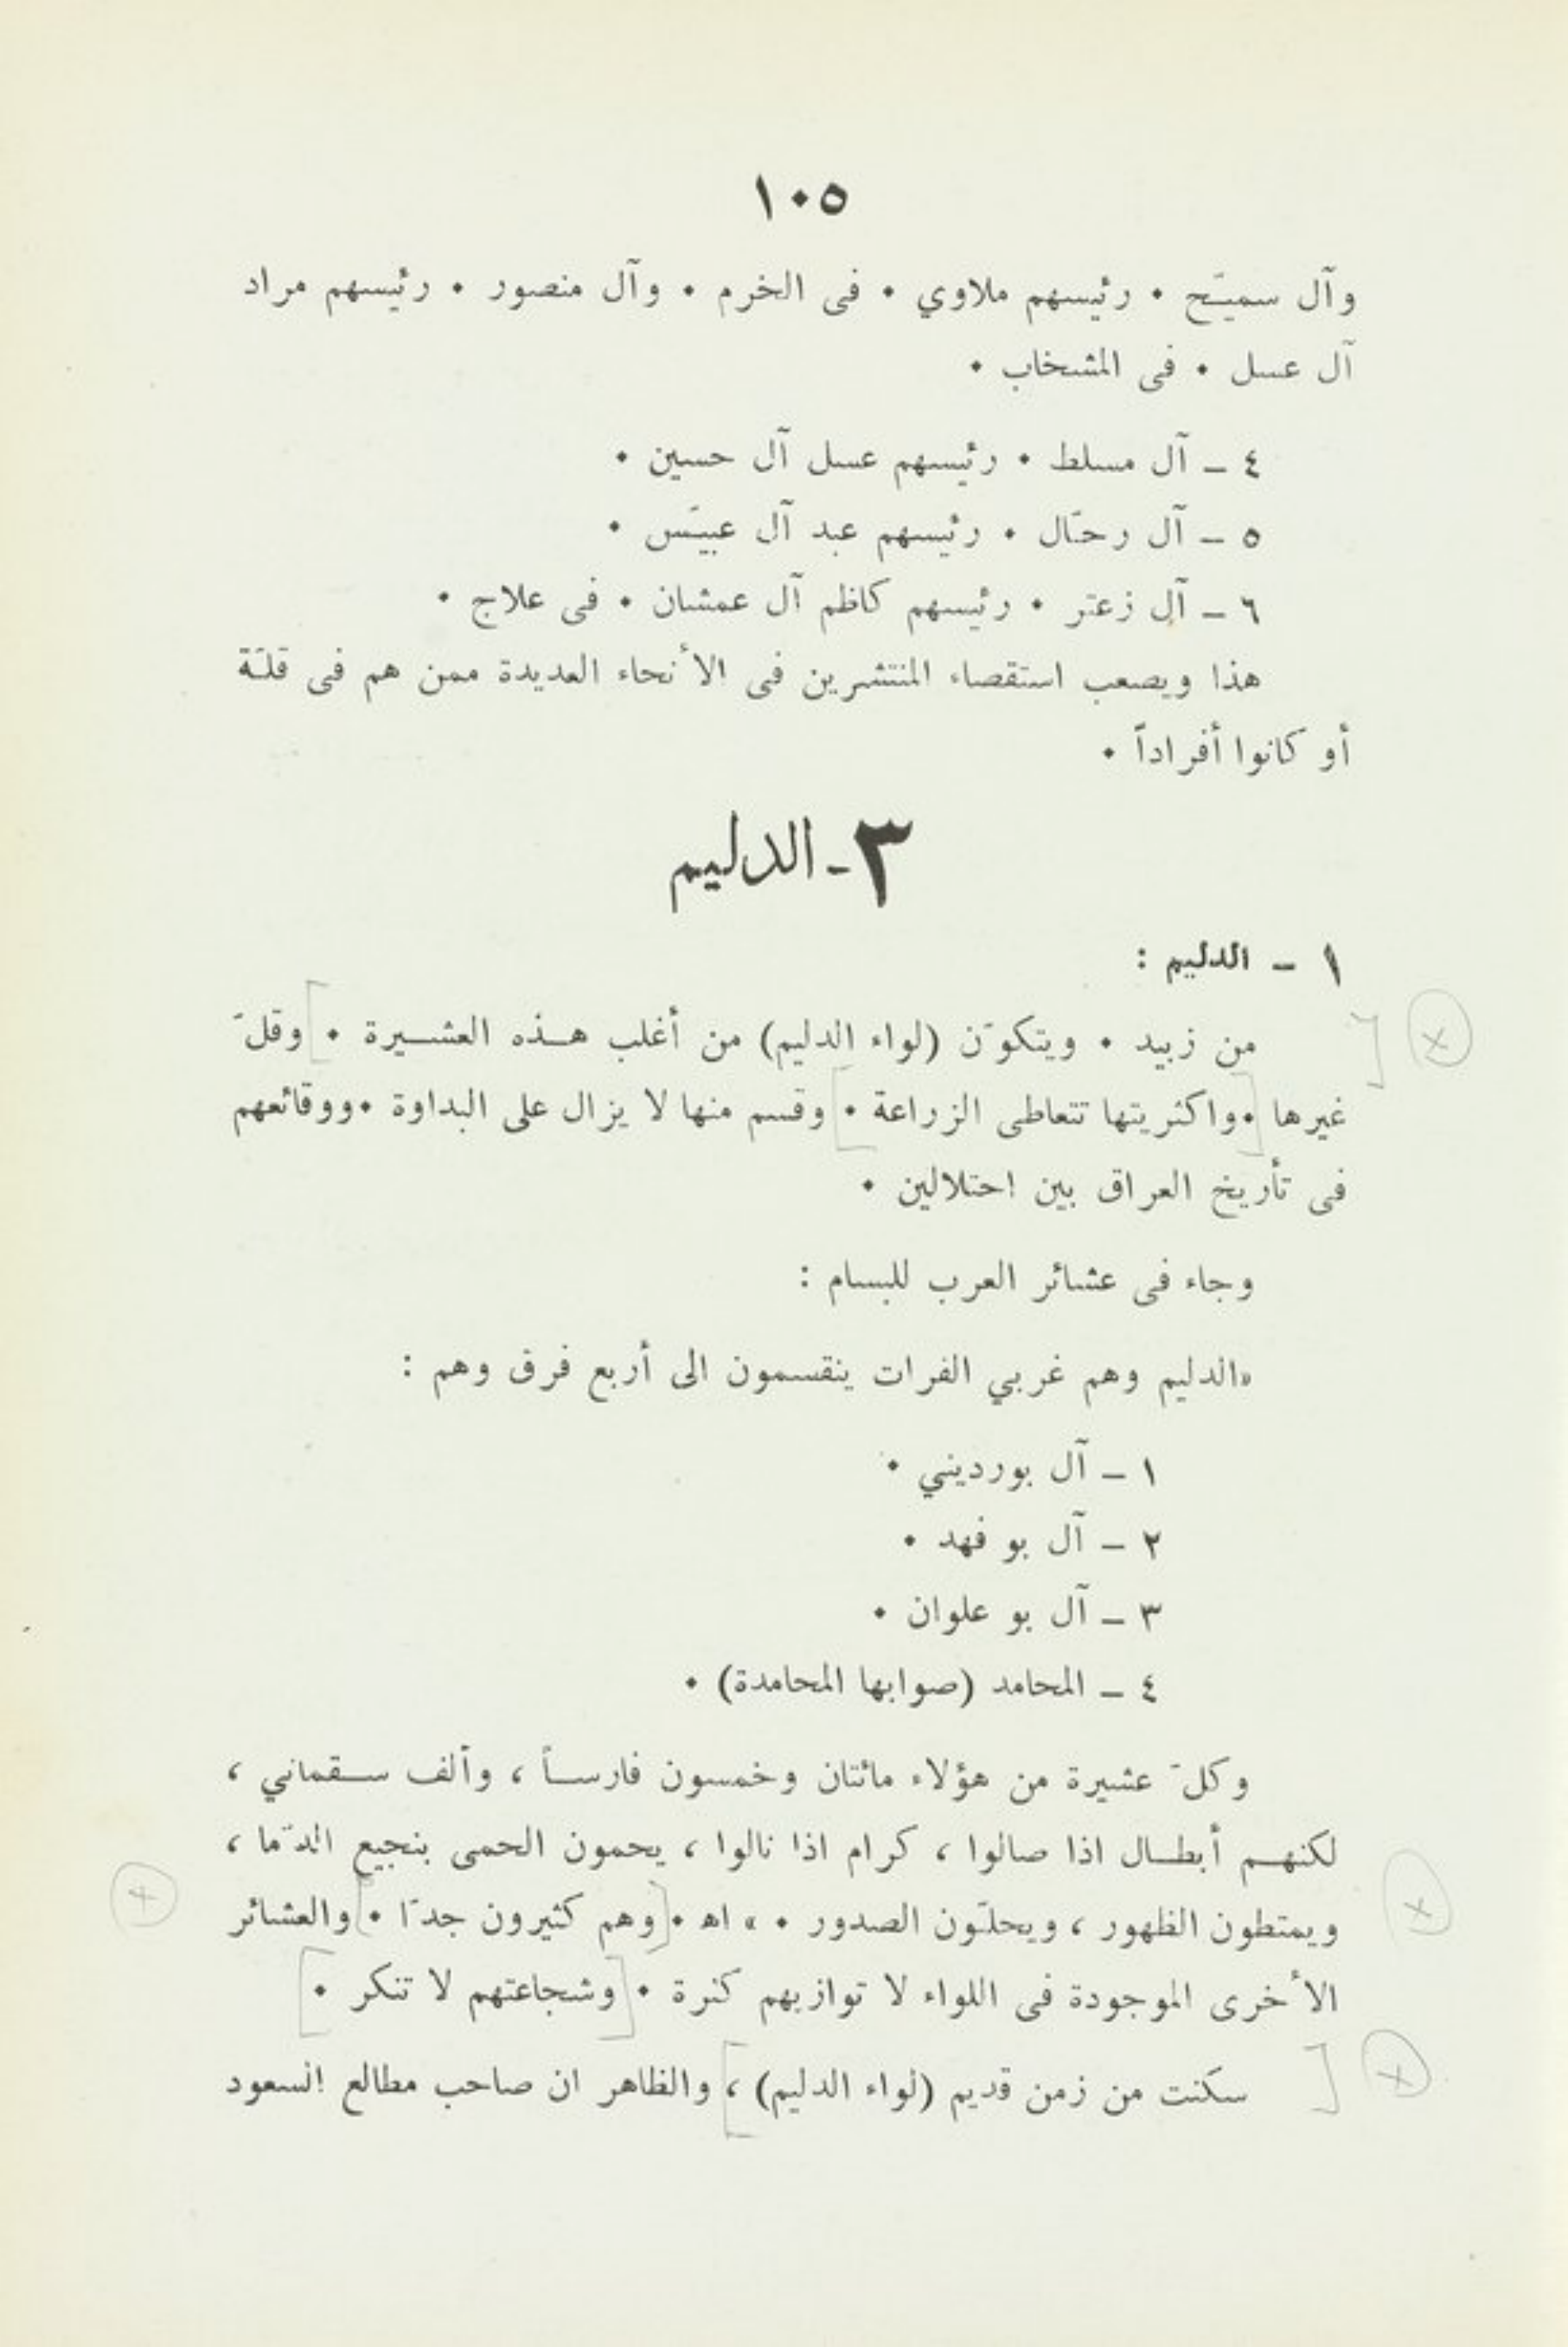 ١٠٥
وآل سميّح ٠ رئيسهم ملاوي ٠ فى الخرم ٠ وآل منصور ٠ رئيسهم مراد
آل عسل ٠ فى المشخاب ٠
٤ – آل مسلط ٠ رئيسهم عسل آل حسين ٠
٥ – آل رحّال ٠ رئيسهم عبد آل عبيّس ٠
٦ – آل زعتر ٠ رئيسهم كاظم آل عمشان ٠ فى علاج ٠
هذا ويصعب استقصاء المنتشرين فى الأنحاء العديدة ممن هم فى قلّة
أو كانوا أفراداً ٠
٣ - الدليم
١ – الدليم :
من زبيد ٠ ويتكوّن (لواء الدليم) من أغلب هـذه العشـيرة ٠ [وقلّ
غيرها ٠] واكثريتها تتعاطى الزراعة ٠ [وقسم منها لا يزال على البداوة ٠ ووقائعهم
فى تأريخ العراق بين احتلالين ٠
وجاء فى عشائر العرب للبسام :
«الدليم وهم غربي الفرات ينقسمون الى أربع فرق وهم :
١ – آل بورديني ٠
٢ – آل بو فهد ٠
٣ – آل بو علوان ٠
٤ – المحامد (صوابها المحامدة) ٠
وكلّ عشيرة من هؤلاء مائتان وخمسون فارسـاً ، وألف سـقماني ،
لكنهـم أبطـال اذا صالوا ، كرام اذا نالوا ، يحمون الحمى بنجيع الدّما ،
ويمتطون الظهور ، ويحلّون الصدور ٠ » اهـ ٠ [وهم كثيرون جدّا ٠] والعشائر
الأخرى الموجودة فى اللواء لا توازيهم كثرة ٠ [وشجاعتهم لا تنكر ٠]
سكنت من زمن قديم (لواء الدليم) ، [والظاهر ان صاحب مطالع السعود